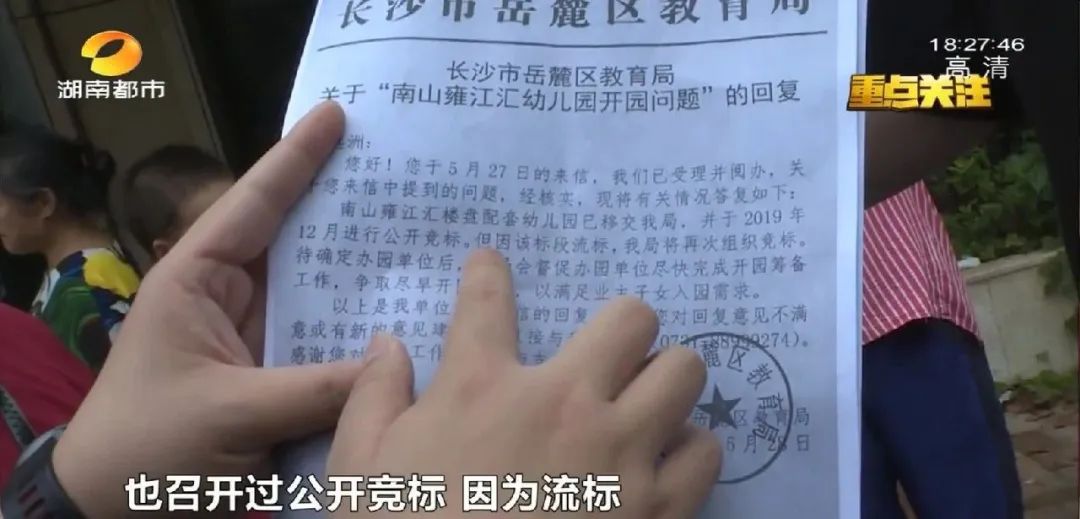 长沙市岳麓区教育局
18:27:46
高清
湖南都市
重点关注
长沙市岳麓区教育局
关于“南山雍江汇幼儿园开园问题”的回复
洲：
您好！您于5月27日的来信，我们已受理并阅办，关
您来信中提到的问题，经核实，现将有关情况答复如下：
南山雍江汇楼盘配套幼儿园已移交我局，并于2019年
12月进行公开竞标。但因该标段流标，我局将再次组织竞标。
待确定办园单位后，会督促办园单位尽快完成开园筹备
工作，争取尽早开，以满足业主子女入园需求。
以上是我单位信的回复您对回复意见不满
意或有新的意见建接与(0731-88999274)。
感谢您对工作
岳麓区教育局
28日
麓区教育局
也召开过公开竞标 因为流标